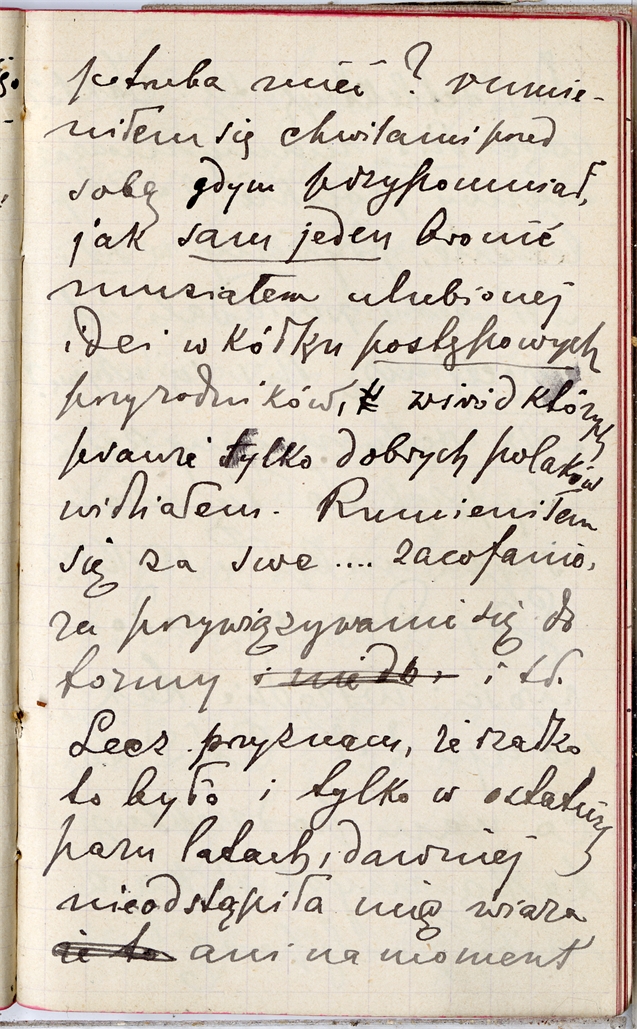 potrzeba mieć? rumie-
niłem się chwilami przed
sobą gdym przypomniał,
jak sam jeden bronić
musiałem ulubionej
idei w kółku postępowych
przyrodników, wśród których
prawie tylko dobrych polaków
widziałem. Rumieniłem
się za swe .... zacofanie,
za przywiązywanie się do
formy i t d.
Lecz przyznam, że rzadko
to było i tylko w ostatnich
paru latach, dawniej
nieodstąpiła mię wiara
że to ani na moment